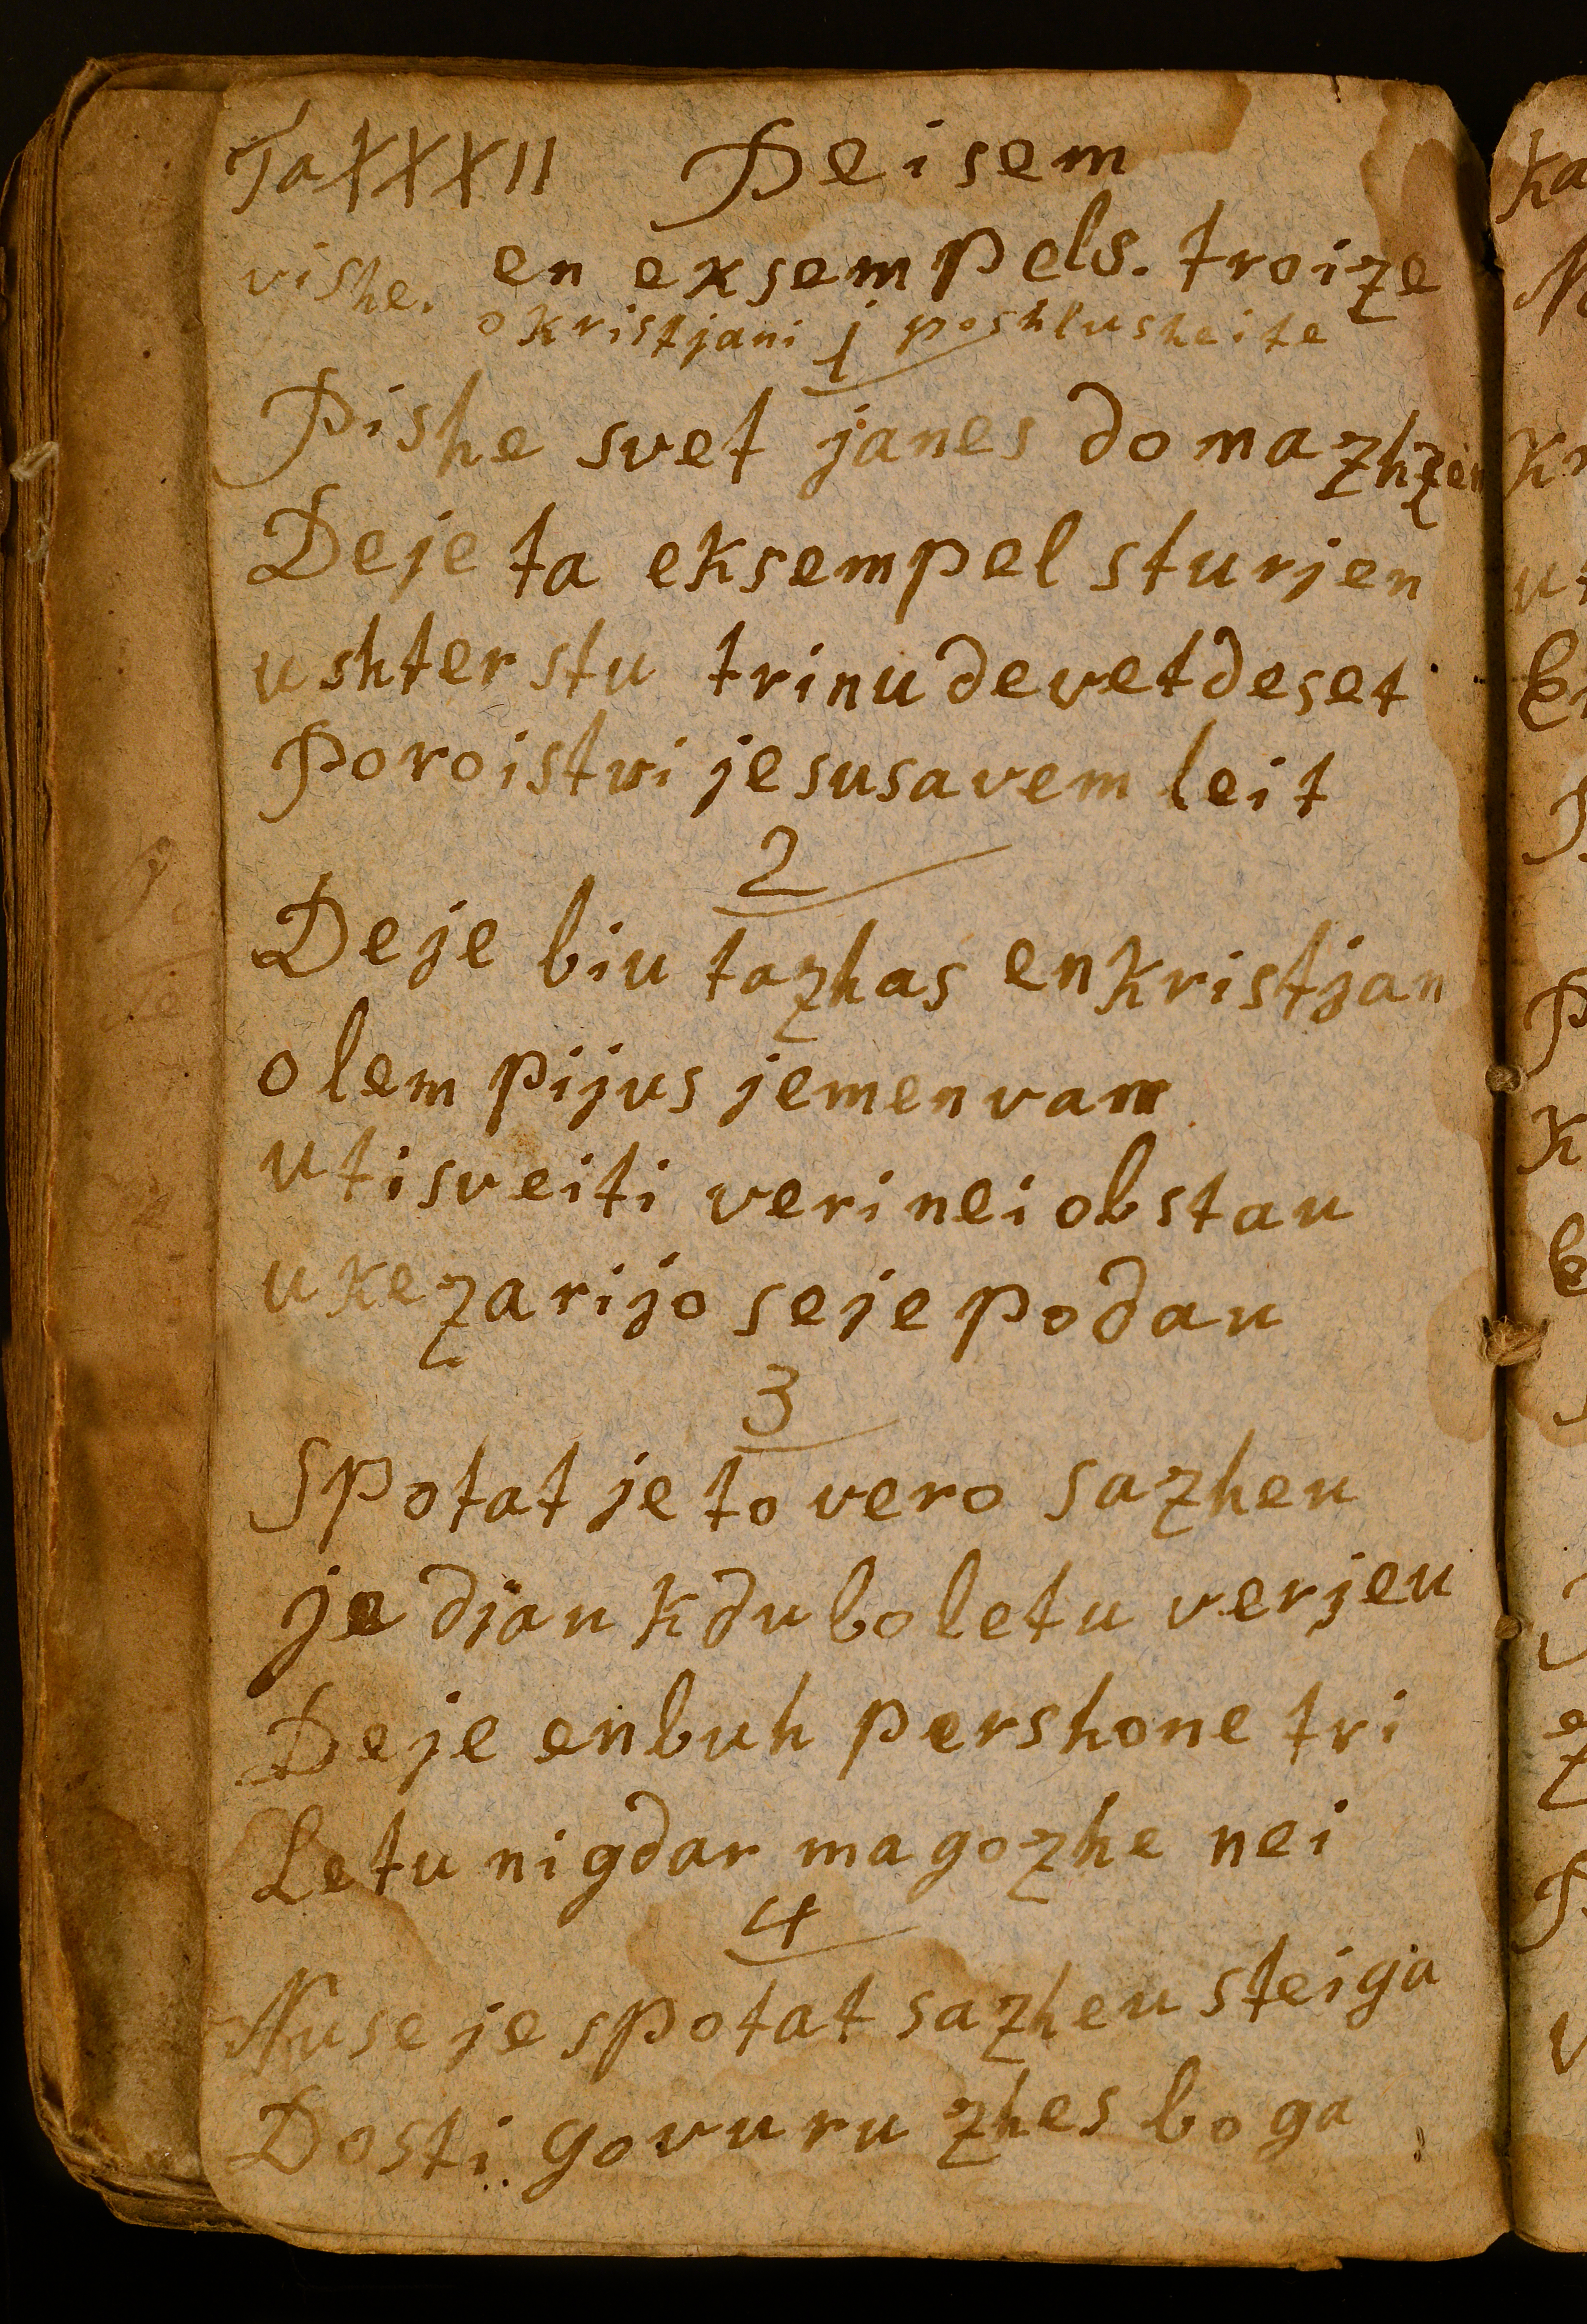 Ta XXXII Peisem
vishe. en eksempel s. troize
o kristjani poshlusheite
1
Pishe svet janes domazhzen
Deje ta eksempel sturjen
ushterstu trinu devetdeset
Poroistvi jesusavem leit
2
Deje biu tazhas en kristjan
olempijus jemen vam
utisveiti veri nei obstau
u kezarijo seje podau
3
Spotat je to vero sazheu
je djau kdu bo letu verjeu
Deje en buh pershone tri
Letu nigdar magozhe nei
4
Nuseje spotat sazheu steiga
Dosti govuru zhes boga